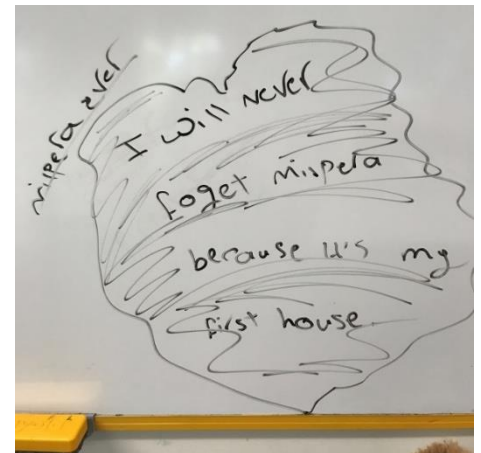 mispera ever
I will never
foget mispera
because it's my
first house